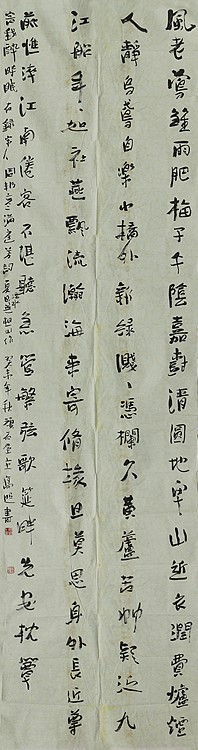 風老鶯雛雨肥梅子午陰嘉樹清圓地卑山近衣潤費爐煙
人靜烏鳶自樂小橋外新綠濺、憑欄久黃蘆苦竹疑泛九
江船年、如社燕飄流瀚海來寄脩椽且莫思身外長近尊
前憔悴江南倦客不堪聽急管繁弦歌筵畔先安枕簟
容我醉時眠 右錄宋人周邦彥滿庭芳詞夏日 作 癸未年秋 書